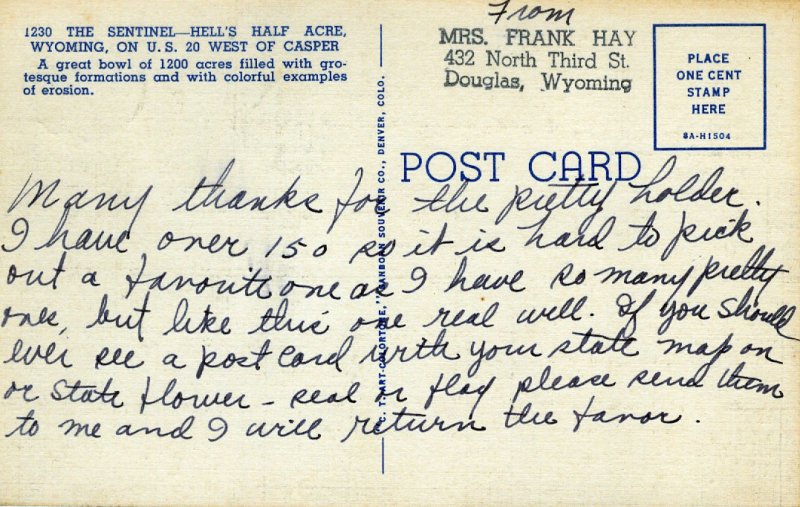 1230 THE SENTINEL—HELL'S HALF ACRE,
WYOMING, ON U.S. 20 WEST OF CASPER
A great bowl of 1200 acres filled with gro-
tesque formations and with colorful examples
of erosion.
From
MRS. FRANK HAY
432 North Third St.
Douglas, Wyoming
PLACE
ONE CENT
STAMP
HERE
8A-H1504
POST CARD
C. T. ART-COLORTONE, SANBORN SOUVENIR CO., DENVER, COLO.
Many thanks for the pretty holder.
I have over 150 so it is hard to pick
out a favorite one as I have so many pretty
ones, but like this one real well. If you should
ever see a post card with your state map on
or State flower – seal or flag please send them
to me and I will return the favor.